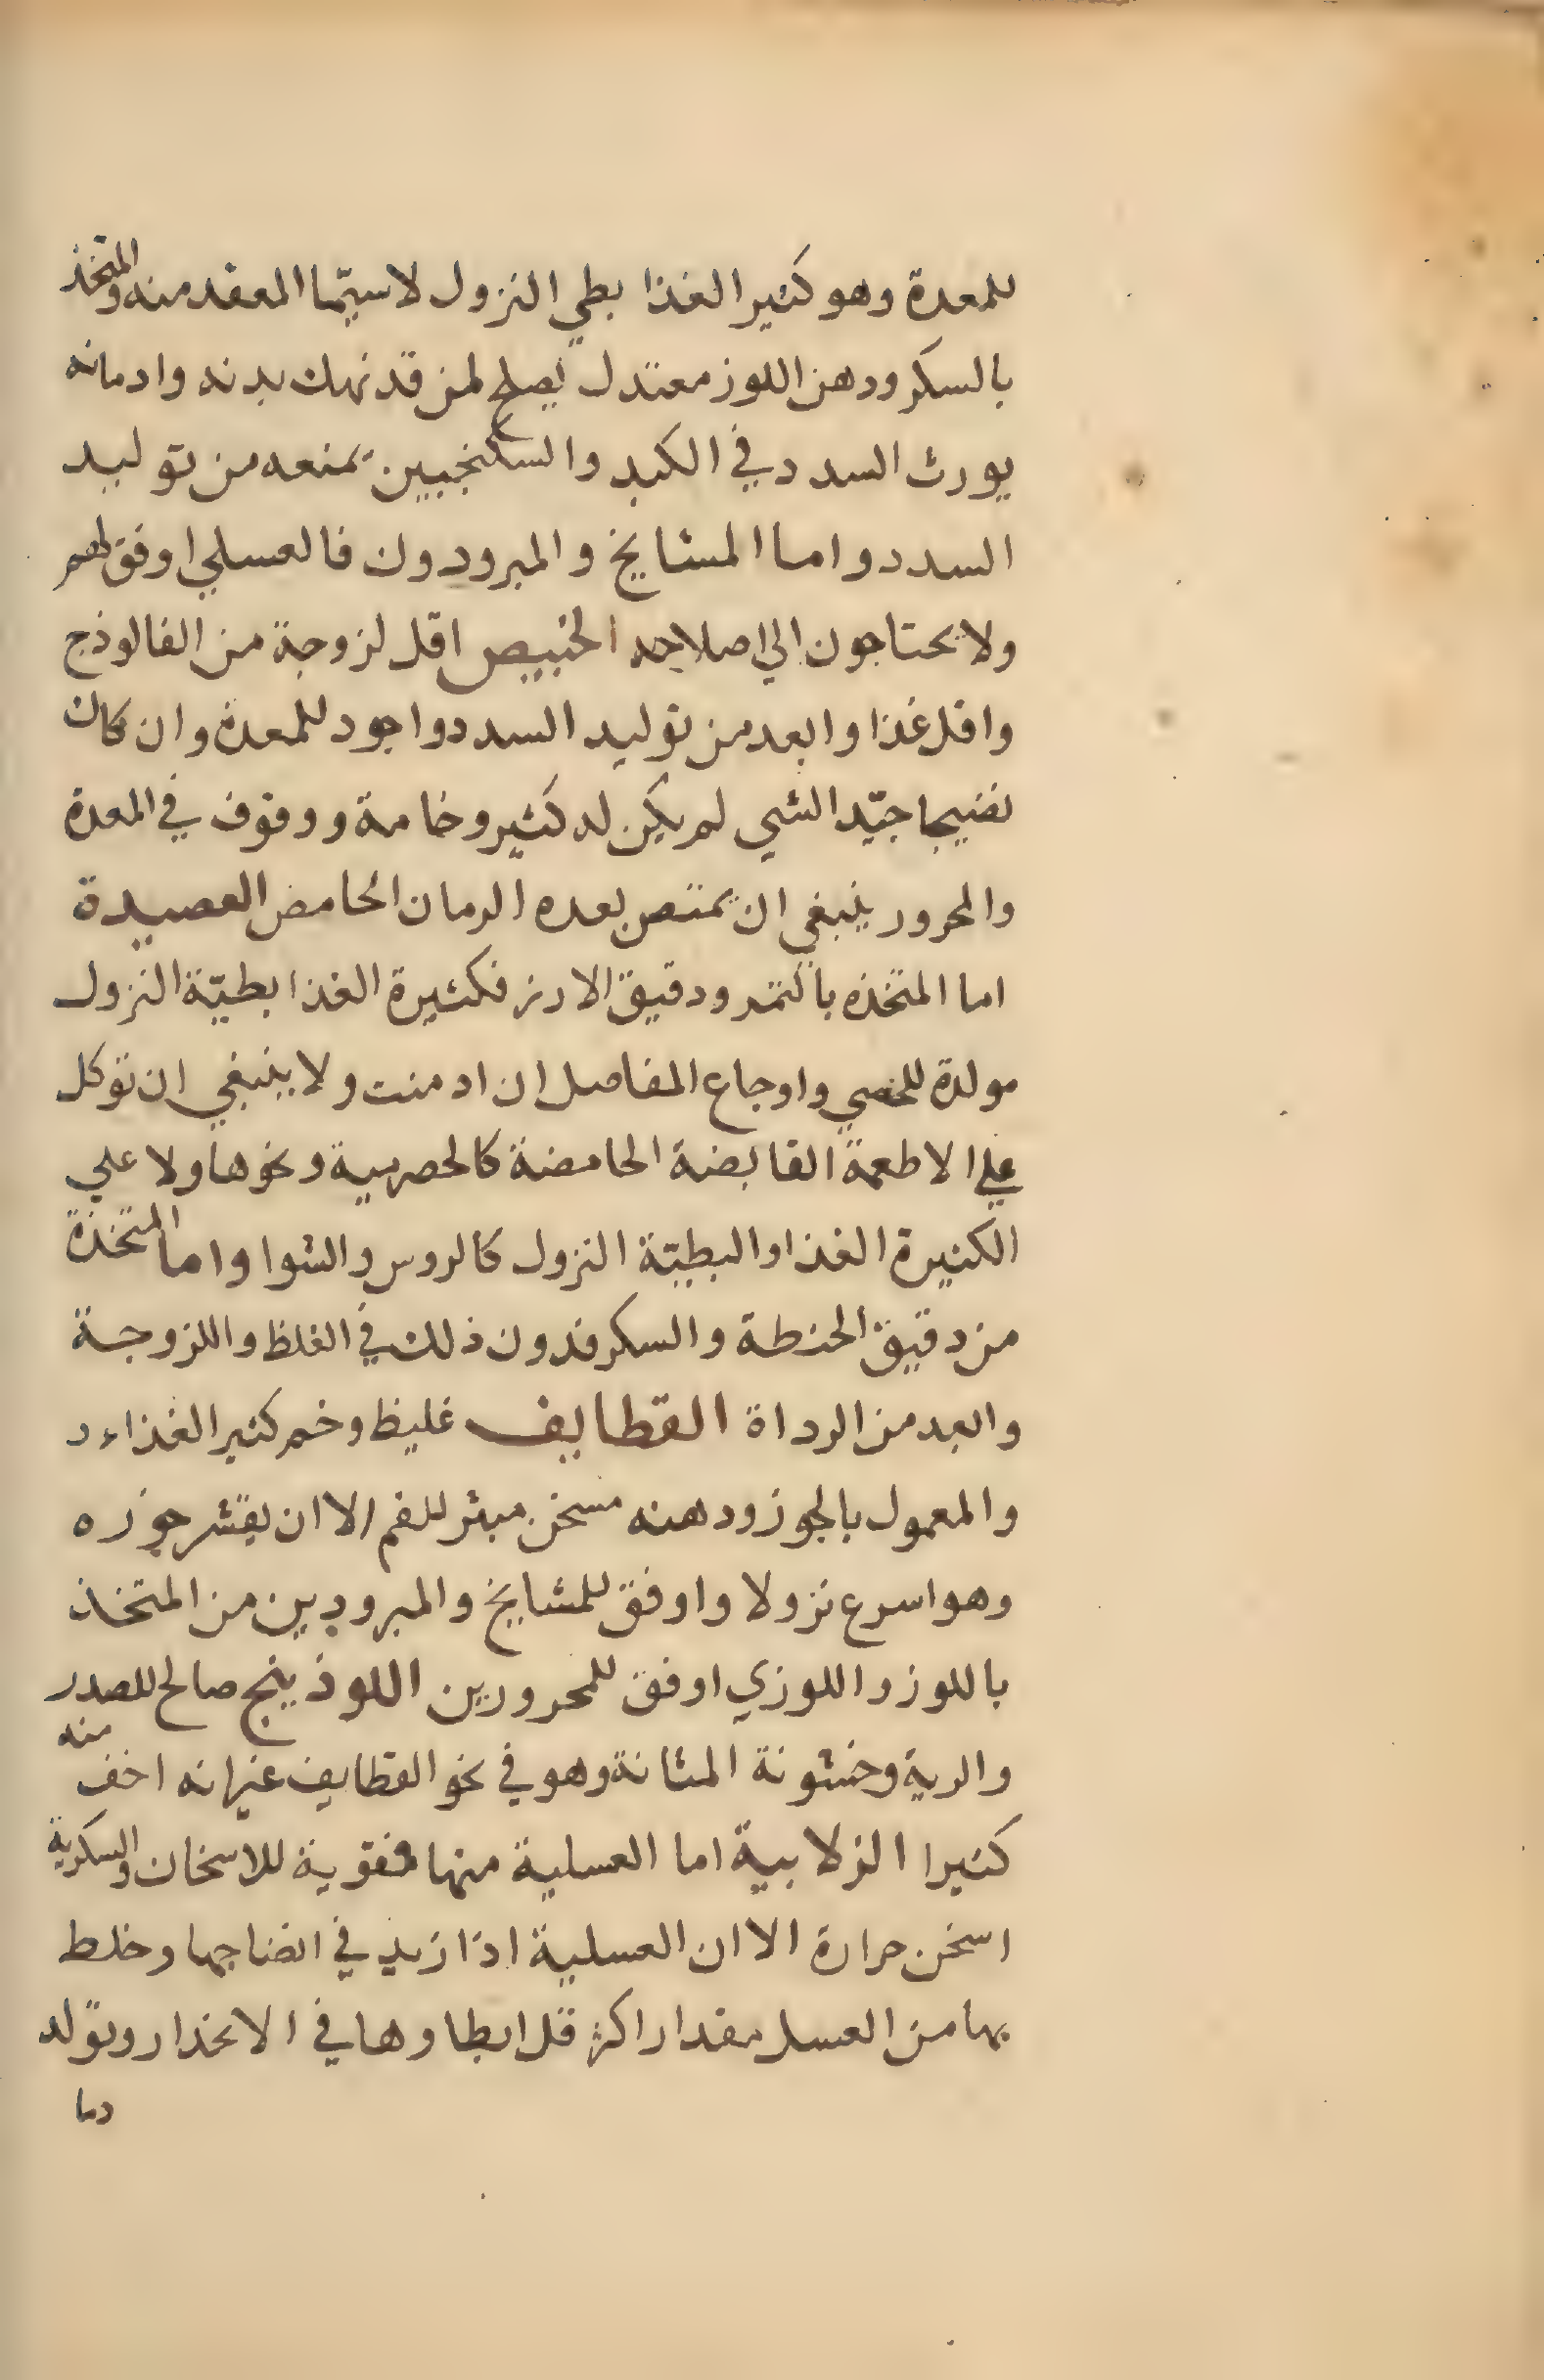 للمعدة وهو كثير الغذا بطي النزول لاسيّما المعقد منه والمتخذ
بالسكر ودهن اللوز معتدل يصلح لمن قد نهك بدنه وادمانه
يورث السدد في الكبد والسكنجبين يمنعه من توليد
السدد واما المشايخ والمبرودون فالعسلي اوفق لهم
ولا يحتاجون الي اصلاحه الخبيص اقل لزوجة من الفالوذج
واقل غذا وابعد من توليد السدد واجود للمعدة وان كان
نضيجا جيّد الشي لم يكن له كثير وخامة ووقوف في المعدة
والمحرور ينبغي ان يمتص بعده الرمان الحامض العصيدة
اما المتخذه بالتمر ودقيق الارز فكثيرة الغذا بطيّة النزول
مولدة للحصي واوجاع المفاصل ان ادمنت ولا ينبغي ان توكل
علي الاطعمة القابضة الحامضة كالحصرمية ونحوها ولا علي
الكثيرة الغذا والبطيّة النزول كالروس والشوا واما المتخذة
من دقيق الحنطة والسكر فدون ذلك في الغلظ واللزوجة
وابعد من الرداة القطايف غليظ وخم كثير الغذاء
والمعمول بالجوز ودهنه مسخن مبثر للفم الا ان يقشر جوزه
وهو اسرع نزولا واوفق للمشايخ والمبرودين من المتخذ
باللوز واللوزي اوفق للمحرورين اللوذينج صالح للصدر
والرية وخشونة المثانة وهو في نحو القطايف غير انه اخف منه
كثيرا الزلابية اما العسلية منها فقوية للاسخان والسكرية
اسخن حرارة الا ان العسلية اذا زيد في انضاجها وخلط
بها من العسل مقدار اكثر قل ابطاوها في الانحدار وتولد
دما